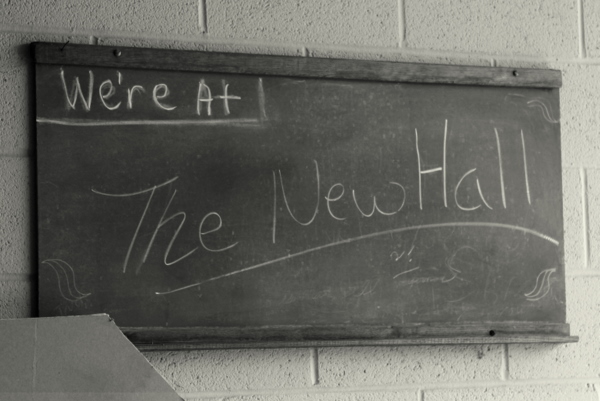 We're At
The New Hall